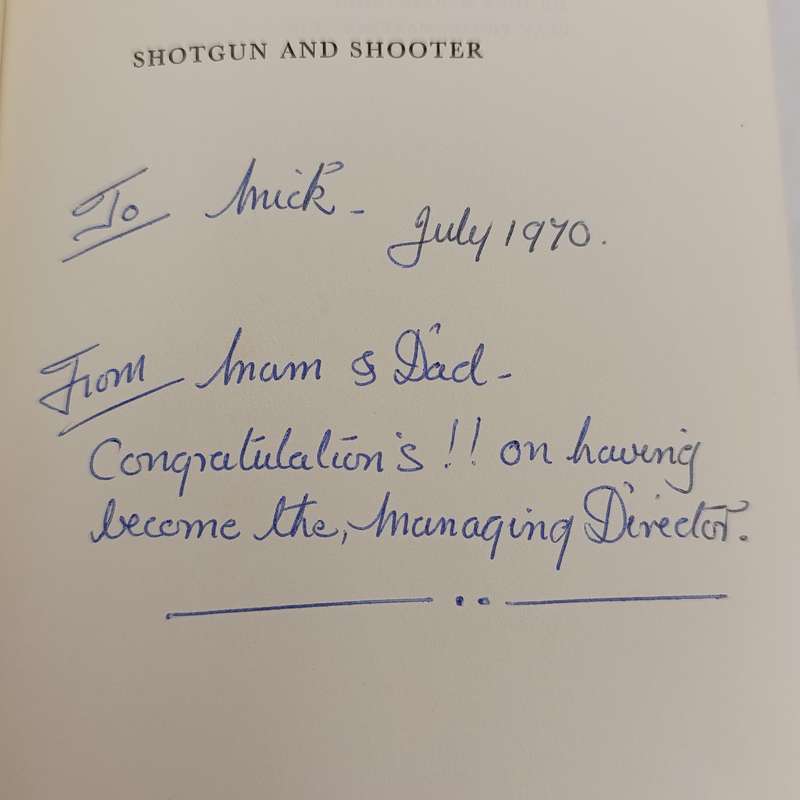 SHOTGUN AND SHOOTER
To Mick - July 1970.
From Mam & Dad -
Congratulation's !! on having
become the, Managing Director.